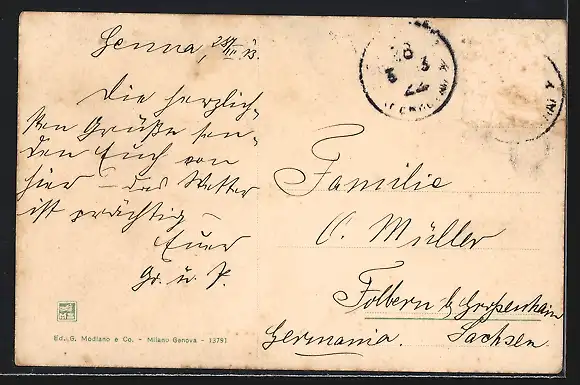 Genua, 28/III 13.
Die herzlich-
sten Grüße sen-
den Euch von
hier – das Wetter
ist prächtig –
Euer
Gr. u. P.
Familie
O. Müller
Folbern b/ Großenhain
Sachsen.
Germania.
28
3
Ed. G. Modiano e Co. - Milano Genova - 13791